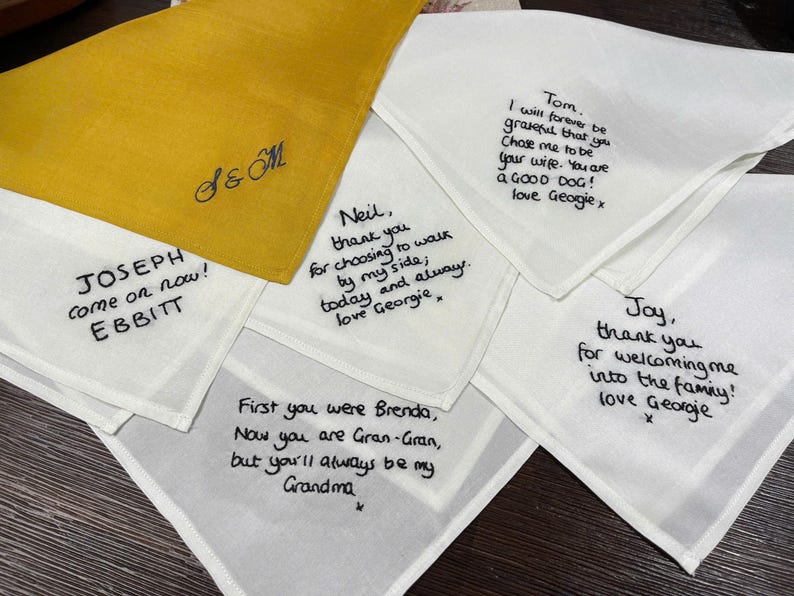 S & M
Tom.
I will forever be
grateful that you
Chose me to be
your wife. You are
a GOOD DOG!
love Georgie x
Neil,
thank you
for choosing to walk
by my side;
today and always.
love Georgie x
JOSEPH
come on now!
EBBITT
Joy,
thank you
for welcoming me
into the family!
love Georgie
x
First you were Brenda,
Now you are Gran-Gran,
but you'll always be my
Grandma
x